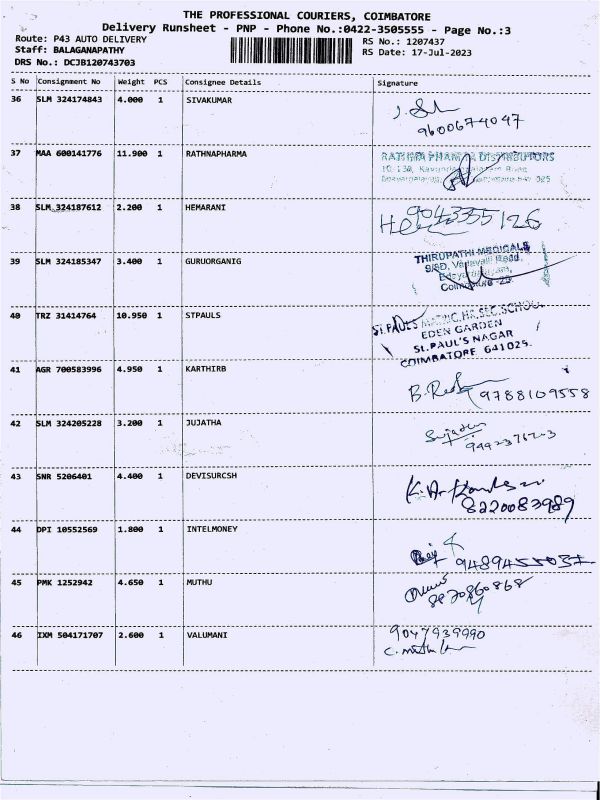 THE PROFESSIONAL COURIERS, COIMBATORE
Delivery Runsheet - PNP - Phone No.:0422-3505555 - Page No.:3
Route: P43 AUTO DELIVERY
RS No.: 1207437
Staff: BALAGANAPATHY
RS Date: 17-Jul-2023
DRS No.: DCJB120743703
S No Consignment No Weight PCS Consignee Details Signature
36 SLM 324174843 4.000 1 SIVAKUMAR
9600674047
37 MAA 600141776 11.900 1 RATHNAPHARMA
RATHNA PHARMA DISTRIBUTORS
38 SLM 324187612 2.200 1 HEMARANI
904335126
39 SLM 324185347 3.400 1 GURUORGANIG
THIRUPATHI MEDICALS
Road,
Coimbatore -25.
40 TRZ 31414764 10.950 1 STPAULS
ST.PAULS MATRIC.HR.SEC.SCHOOL
EDEN GARDEN
St.PAUL'S NAGAR
COIMBATORE 641025.
41 AGR 700583996 4.950 1 KARTHIRB
9788109558
42 SLM 324205228 3.200 1 JUJATHA
43 SNR 5206401 4.400 1 DEVISURCSH
8220083989
44 DPI 10552569 1.800 1 INTELMONEY
45 PMK 1252942 4.650 1 MUTHU
8870860868
46 IXM 504171707 2.600 1 VALUMANI
9047939990